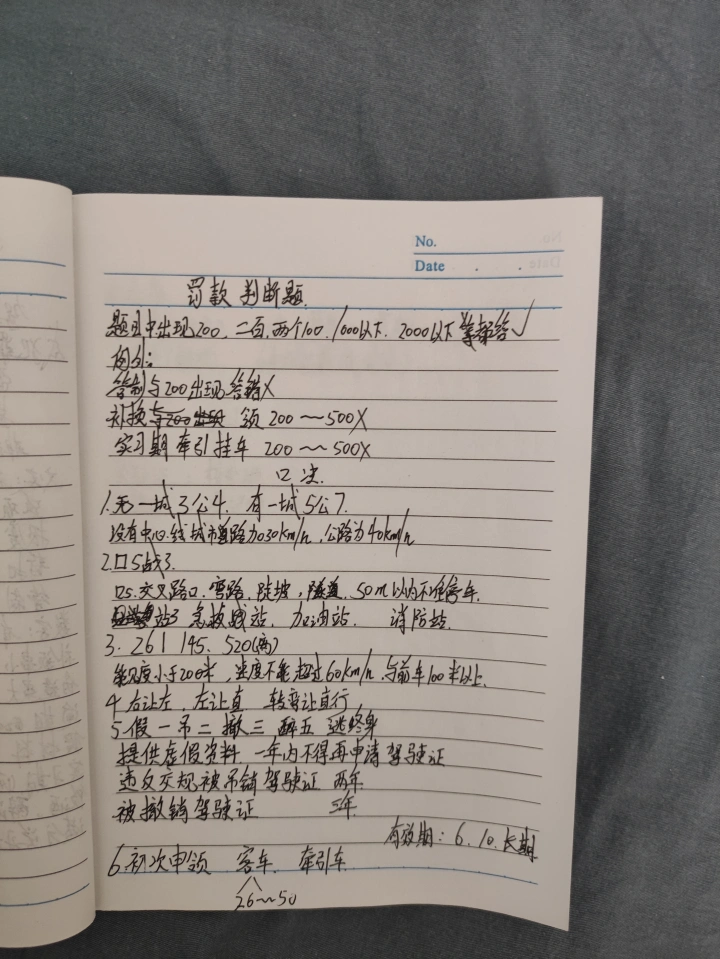 No.
Date . .
罚款 判断题.
题目中出现200,二百,两个100,1000以下.2000以下等都答✓
例外:
管制与200出现答错X
补换 领 200~500X
实习期牵引挂车 200~500X
口决
1.无一城3公4. 有一城5公7.
没有中心线城市道路为030km/h,公路为40km/h
2.口5战3.
口5.交叉路口.弯路.陡坡,隧道.50m以内不准停车.
站3 急救战站.加油站. 消防站.
3. 261 145. 520(离)
能见度小于200米,速度不能超过60km/h.与前车100米以上.
4.右让左,左让直 转弯让直行
5.假一吊二撤三醉五逃终身
提供虚假资料.一年内不得再申请驾驶证
违反交规被吊销驾驶证 两年
被撤销驾驶证 三年.
有效期:6.10.长期
6.初次申领 客车. 牵引车
26~50